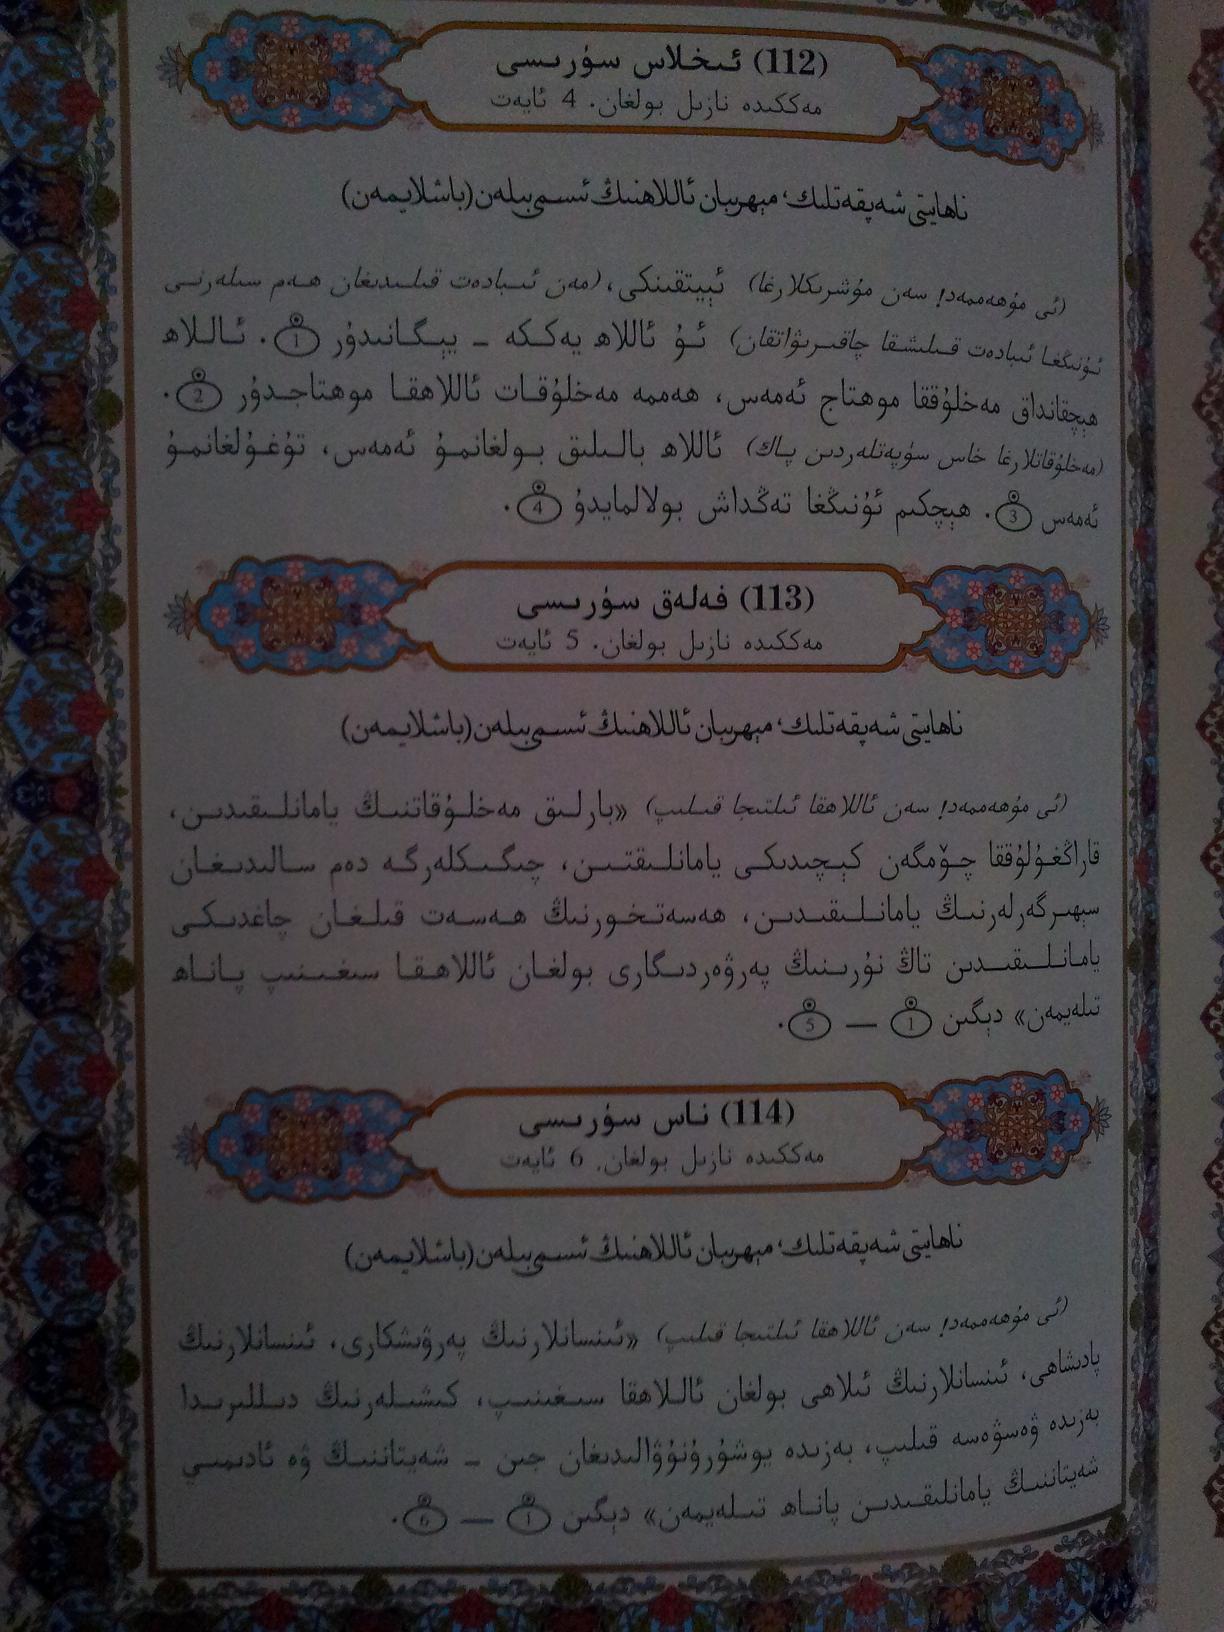 (112) ئىخلاس سۈرىسى
مەككىدە نازىل بولغان. 4 ئايەت
ناھايىتى شەپقەتلىك، مېھرىبان ئاللاھنىڭ ئىسمى بىلەن (باشلايمەن)
(ئى مۇھەممەد! سەن مۇشرىكلارغا) ئېيتقىنكى، (مەن ئىبادەت قىلىدىغان ھەم سىلەرنى
ئۇنىڭغا ئىبادەت قىلىشقا چاقىرىۋاتقان) ئۇ ئاللاھ يەككە - يېگانىدۇر 1. ئاللاھ
ھېچقانداق مەخلۇققا موھتاج ئەمەس، ھەممە مەخلۇقات ئاللاھقا موھتاجدۇر 2.
(مەخلۇقاتلارغا خاس سۈپەتلەردىن پاك) ئاللاھ بالىلىق بولغانمۇ ئەمەس، تۇغۇلغانمۇ
ئەمەس 3. ھېچكىم ئۇنىڭغا تەڭداش بولالمايدۇ 4.
(113) فەلەق سۈرىسى
مەككىدە نازىل بولغان. 5 ئايەت
ناھايىتى شەپقەتلىك، مېھرىبان ئاللاھنىڭ ئىسمى بىلەن (باشلايمەن)
(ئى مۇھەممەد! سەن ئاللاھقا ئىلتىجا قىلىپ) «بارلىق مەخلۇقاتنىڭ يامانلىقىدىن،
قاراڭغۇلۇققا چۆمگەن كېچىدىكى يامانلىقتىن، چىگىكلەرگە دەم سالىدىغان
سېھىرگەرلەرنىڭ يامانلىقىدىن، ھەسەتخورنىڭ ھەسەت قىلغان چاغدىكى
يامانلىقىدىن تاڭ نۇرىنىڭ پەرۋەردىگارى بولغان ئاللاھقا سىغىنىپ پاناھ
تىلەيمەن» دېگىن 1 — 5.
(114) ناس سۈرىسى
مەككىدە نازىل بولغان. 6 ئايەت
ناھايىتى شەپقەتلىك، مېھرىبان ئاللاھنىڭ ئىسمى بىلەن (باشلايمەن)
(ئى مۇھەممەد! سەن ئاللاھقا ئىلتىجا قىلىپ) «ئىنسانلارنىڭ پەرۋىشكارى، ئىنسانلارنىڭ
پادىشاھى، ئىنسانلارنىڭ ئىلاھى بولغان ئاللاھقا سىغىنىپ، كىشىلەرنىڭ دىللىرىدا
بەزىدە ۋەسۋەسە قىلىپ، بەزىدە يوشۇرۇنۇۋالىدىغان جىن - شەيتاننىڭ ۋە ئادىمىي
شەيتاننىڭ يامانلىقىدىن پاناھ تىلەيمەن» دېگىن 1 — 6.